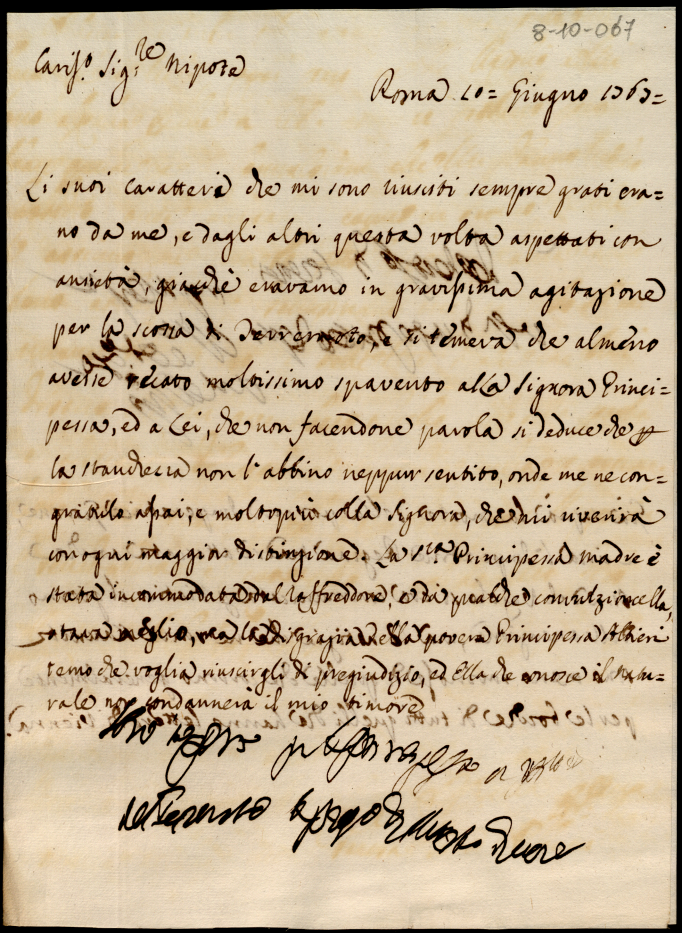 8-10-067
Cariss.o Sig.re Nipote
Roma 10= Giugno 1763=
Li suoi caratteri che mi sono riusciti sempre grati era=
no da me, e dagli altri questa volta aspettati con
ansietà, giacchè eravamo in gravissima agitazione
per la scossa di Terremoto, e si temeva che almeno
avesse recato moltissimo spavento alla Signora Princi=
pessa, ed a Lei, che non facendone parola si deduce che p
la stanchezza non l'abbino neppur sentito, onde me ne con=
gratulo assai, e molto più colla Signora, che mi riverirà
con ogni maggior distinzione. La Sig.ra Principessa madre è
stata incommodata dal raffreddore, e da qualche convulzioncella,
stava meglio, ma la disgrazia della povera Principessa Altieri
temo che voglia riuscirgli di pregiudizio, ed Ella che conosce il natu=
rale non condannerà il mio timore
di tutto cuore